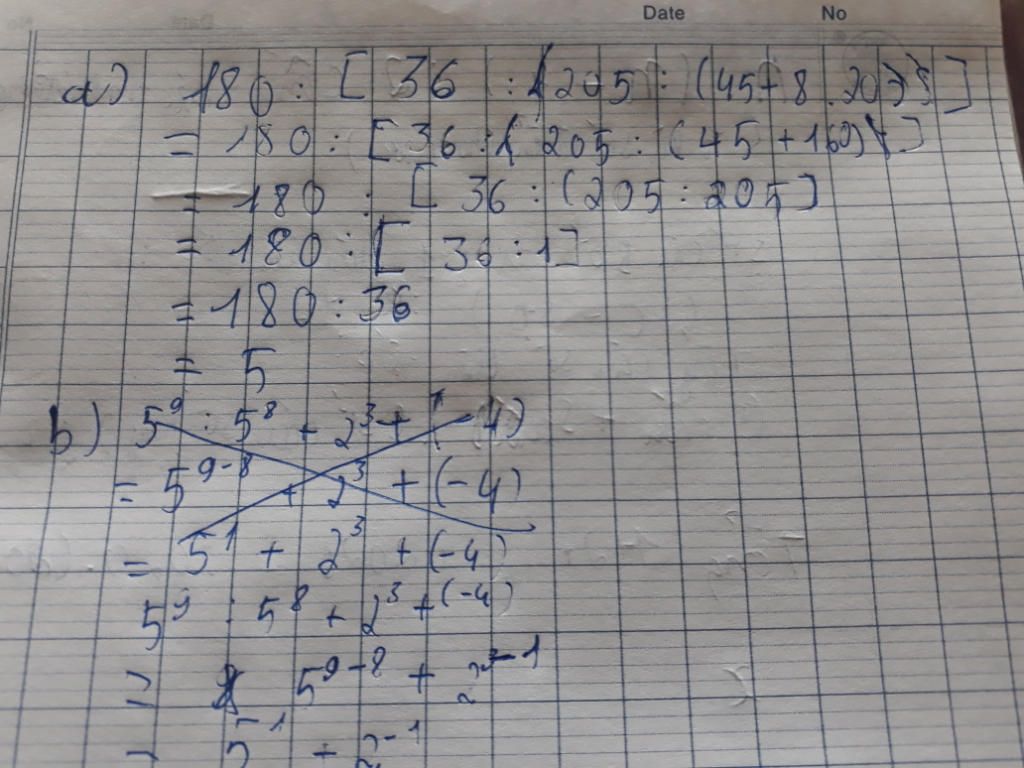 Date No
a) 180 : [ 36 : (205 : (45 + 8 . 20))]
= 180 : [36 : ( 205 : (45 + 160))]
= 180 : [ 36 : (205 : 205]
= 180 : [ 36 : 1]
= 180 : 36
= 5
b) 5⁹ : 5⁸ + 2³ + (- 4)
= 5⁹⁻⁸ + 2³ + (- 4)
= 5¹ + 2³ + (- 4)
5⁹ : 5⁸ + 2³ + (-4)
= 5⁹⁻⁸ + 2³⁻¹